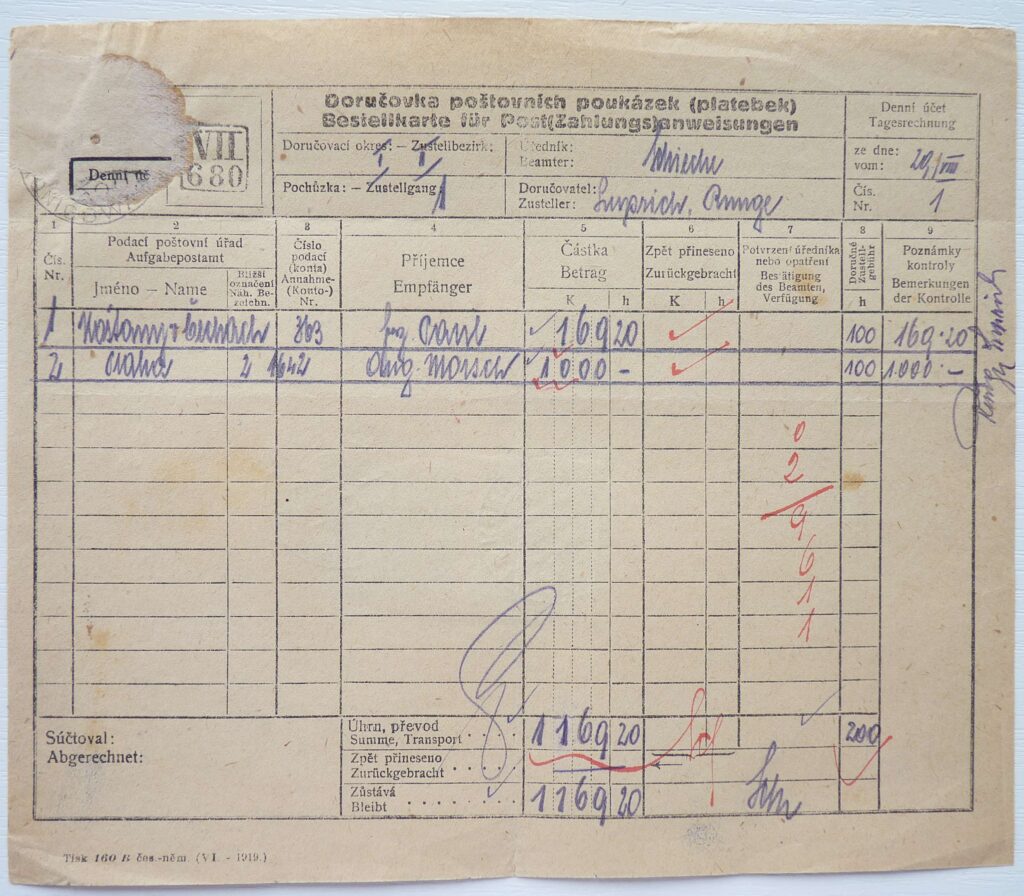 Doručovka poštovních poukázek (platebek)
Bestellkarte für Post(Zahlungs)anweisungen
VII
680
Denní úč
Doručovací okres: — Zustellbezirk:
Pochůzka: — Zustellgang: 1
Úředník:
Beamter:
Doručovatel:
Zusteller:
Denní účet
Tagesrechnung
ze dne:
vom: 29/VIII
Čís.
Nr. 1
1 2 3 4 5 6 7 8 9
Čís.
Nr.
Podací poštovní úřad
Aufgabepostamt
Jméno — Name
Bližší
označení
Näh. Be-
zeichn.
Číslo
podací
(konta)
Annahme-
(Konto-)
Nr.
Příjemce
Empfänger
Částka
Betrag
K h
Zpět přineseno
Zurückgebracht
K h
Potvrzení úředníka
nebo opatření
Bestätigung
des Beamten,
Verfügung
Doručné
Zustell-
gebühr
h
Poznámky
kontroly
Bemerkungen
der Kontrolle
1 363 169 20 100 169·20
2 2 1642 Aug. 1000 — 100 1000·—
0
2
9
6
1
1
Súčtoval:
Abgerechnet:
Úhrn, převod
Summe, Transport 1169 20 200
Zpět přineseno
Zurückgebracht
Zůstává
Bleibt 1169 20
Tisk 160 B čes.-něm. (VI. - 1919.)